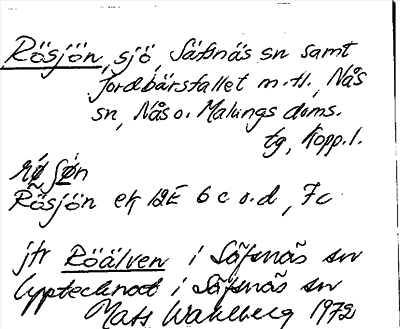 Rösjön, sjö, Säfsnäs sn samt
Jordbärsfallet m.fl., Nås
sn, Nås o. Malungs doms.
tg, Kopp. l.
Rösjön ek 12E 6 c o. d, 7c
jfr Röälven i Säfsnäs sn
Upptecknat i Säfsnäs sn
Mats Wahlberg 1972